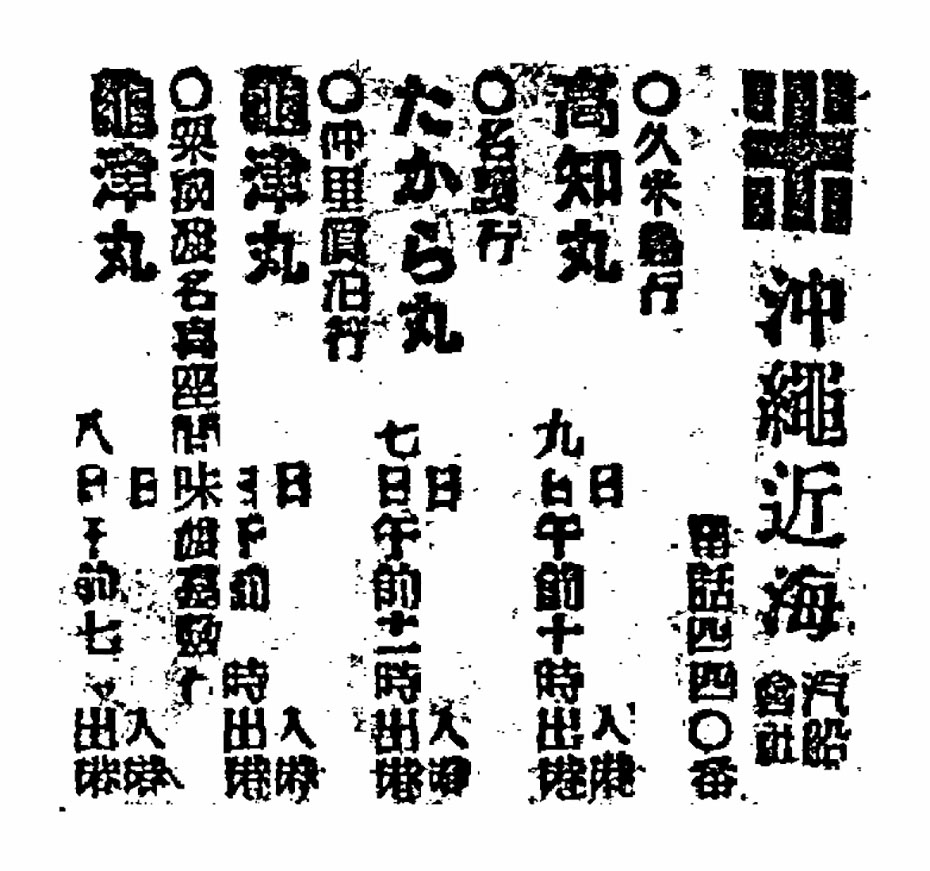 沖繩近海汽船會社
電話四四〇番
〇久米島行
高知丸
日入港
九日午前十時出港
〇名護行
たから丸
日入港
七日午前十一時出港
〇仲里眞泊行
龜津丸
日入港
日午前 時出港
〇粟國渡名喜座間味嘉敷
龜津丸
日入港
八日午前七出港